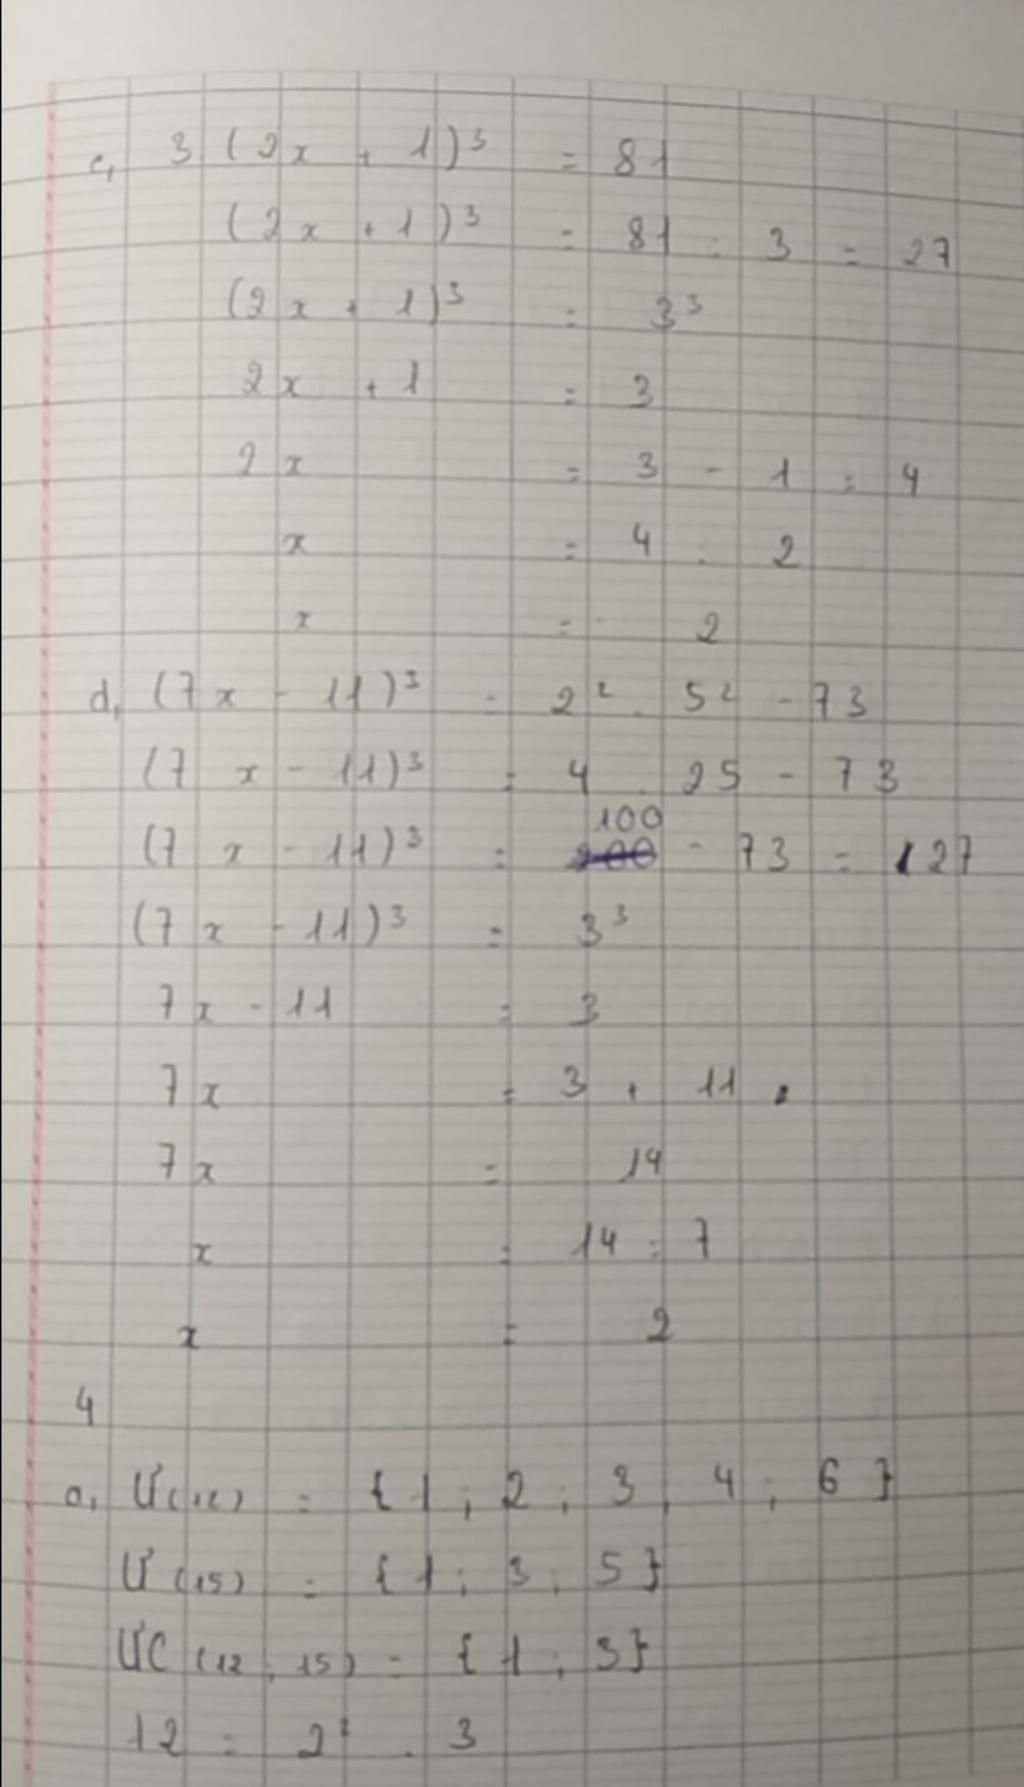 c, 3 (2x + 1)³ = 81
(2x + 1)³ = 81 : 3 = 27
(2x + 1)³ = 3³
2x + 1 = 3
2x = 3 - 1 = 4
x = 4 : 2
x = 2
d, (7x - 11)³ = 2² . 5² - 73
(7x - 11)³ = 4 . 25 - 73
(7x - 11)³ = 100 - 73 = 127
(7x - 11)³ = 3³
7x - 11 = 3
7x = 3 + 11
7x = 14
x = 14 : 7
x = 2
4
a, Ư(12) = {1 ; 2 ; 3 ; 4 ; 6}
Ư(15) = {1 ; 3 ; 5}
ƯC(12 ; 15) = {1 ; 3}
12 = 2² . 3